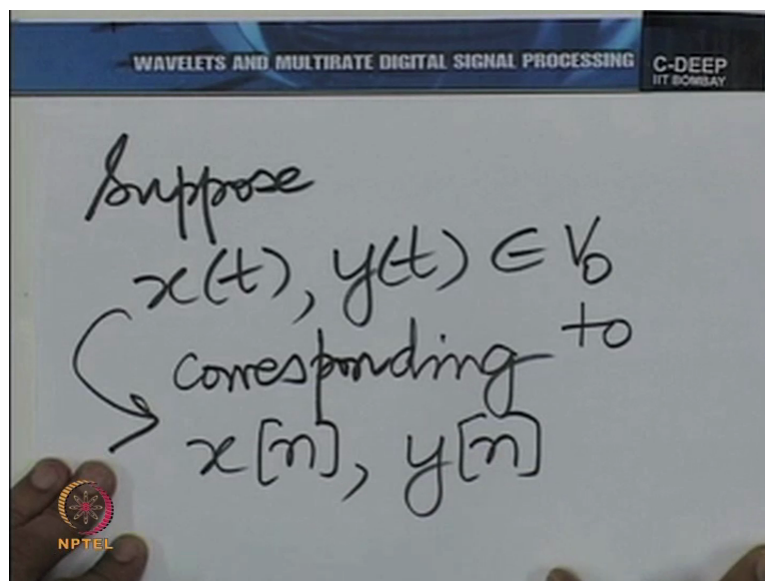 WAVELETS AND MULTIRATE DIGITAL SIGNAL PROCESSING
C-DEEP
IIT BOMBAY
Suppose
x(t), y(t) ∈ V₀
corresponding to
x[n], y[n]
NPTEL